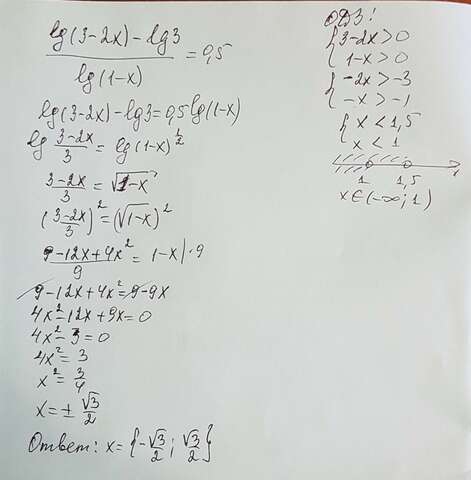 lg(3-2x)-lg3 / lg(1-x) = 0,5
lg(3-2x)-lg3=0,5lg(1-x)
lg 3-2x/3 = lg(1-x)^1/2
3-2x/3 = √1-x
(3-2x/3)^2=(√1-x)^2
9-12x+4x^2/9 = 1-x|·9
9-12x+4x^2=9-9x
4x^2-12x+9x=0
4x^2-3=0
4x^2=3
x^2=3/4
x=±√3/2
Ответ: x={-√3/2; √3/2}
ОДЗ!
{3-2x>0
1-x>0
{-2x>-3
-x>-1
{x<1,5
x<1
1 1,5 x
x∈(-∞;1)